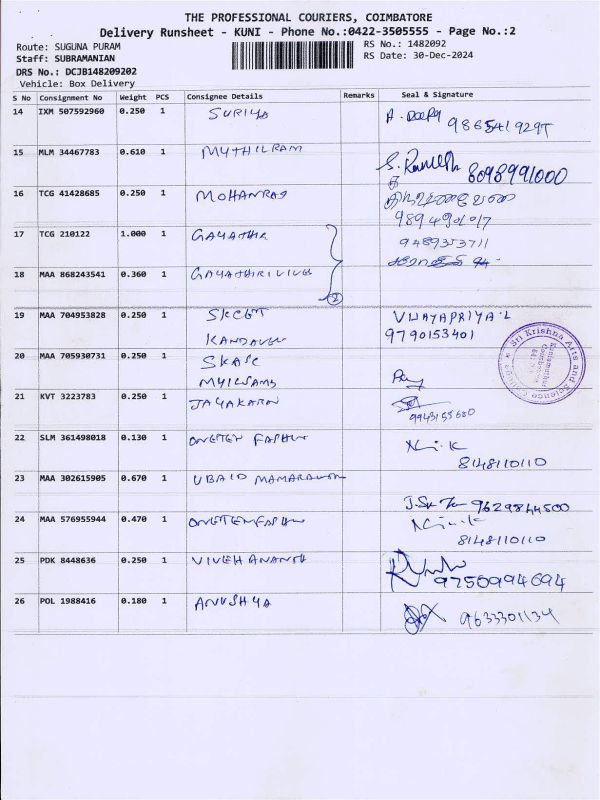 THE PROFESSIONAL COURIERS, COIMBATORE
Delivery Runsheet - KUNI - Phone No.:0422-3505555 - Page No.:2
Route: SUGUNA PURAM
RS No.: 1482092
Staff: SUBRAMANIAN
RS Date: 30-Dec-2024
DRS No.: DCJB148209202
Vehicle: Box Delivery
S No Consignment No Weight PCS Consignee Details Remarks Seal & Signature
14 IXM 507592960 0.250 1 SURIYA
15 MLM 34467783 0.610 1 MYTHILRAM
8098991000
16 TCG 41428685 0.250 1 MOHANRAJ
9894490017
17 TCG 210122 1.000 1 GAYATHIR
9489353711
18 MAA 868243541 0.360 1
2
19 MAA 704953828 0.250 1 SKCET VIJAYAPRIYA.L
9790153401
20 MAA 705930731 0.250 1 SKASC
21 KVT 3223783 0.250 1 JAYAKARAN
9943155680
22 SLM 361498018 0.130 1 ONETEN
8148110110
23 MAA 302615905 0.670 1 UBAID
9629844500
24 MAA 576955944 0.470 1
8148110110
25 PDK 8448636 0.250 1 VIVEHANANTH
9750994694
26 POL 1988416 0.180 1 ANUSHYA
9633301134
Sri Krishna Arts and Science College